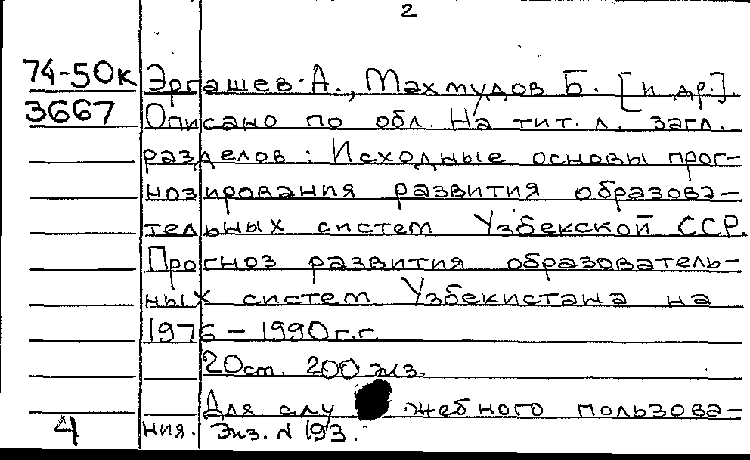 2
74-50к Эргашев А., Махмудов Б. [и др.].
3667 Описано по обл. На тит. л. загл.
разделов: Исходные основы прог-
нозирования развития образова-
тельных систем Узбекской ССР.
Прогноз развития образователь-
ных систем Узбекистана на
1976-1990г.г.
20см. 200 экз.
Для слу жебного пользова-
4 ния. Экз. N 193.